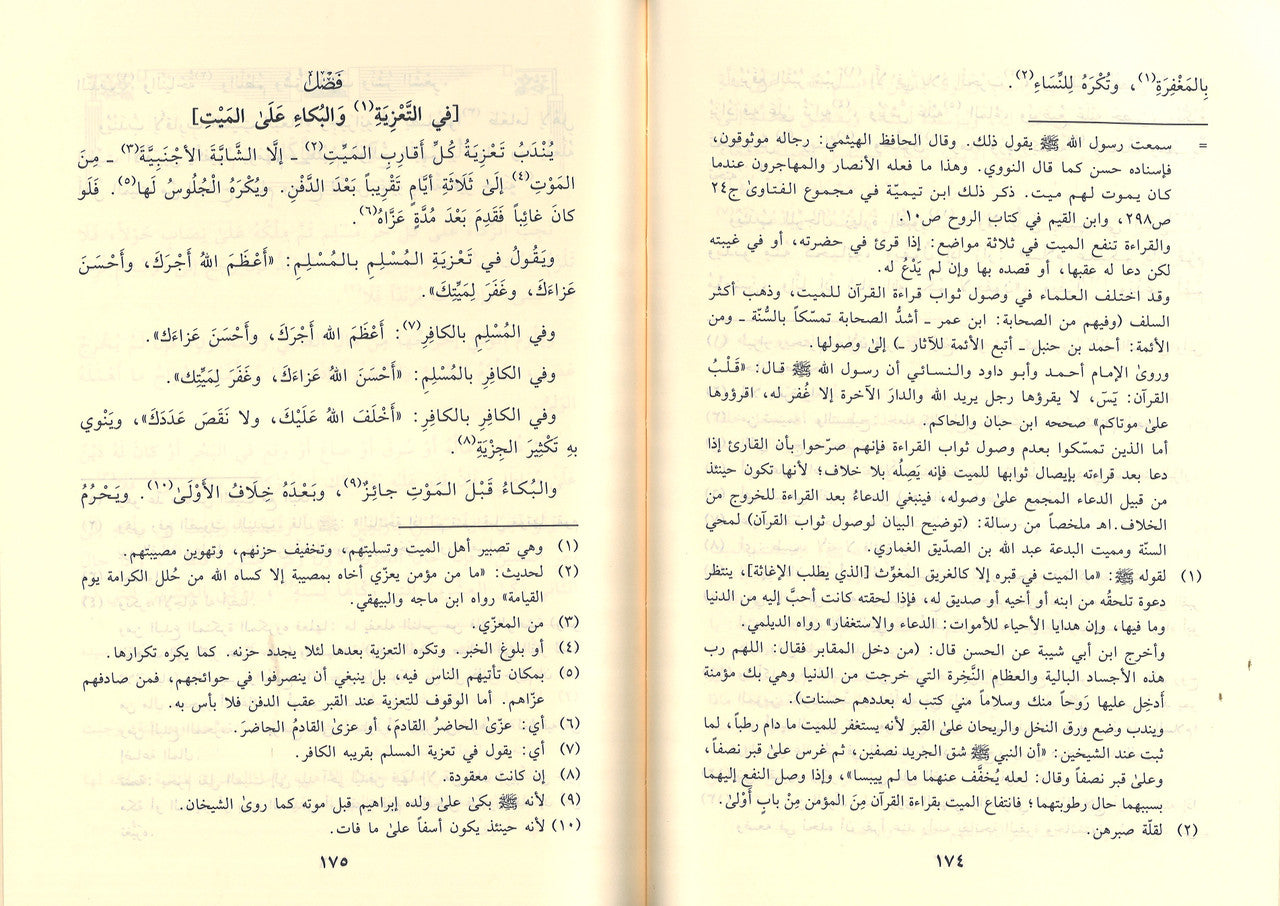 بِالمَغْفِرَةِ(١)، وتُكْرَهُ لِلنِّسَاءِ(٢).
= سمعت رسول الله ﷺ يقول ذلك. وقال الحافظ الهيثمي: رجاله موثوقون،
فإسناده حسن كما قال النووي. وهذا ما فعله الأنصار والمهاجرون عندما
كان يموت لهم ميت. ذكر ذلك ابن تيميّة في مجموع الفتاوىٰ ج٢٤
ص٢٩٨، وابن القيم في كتاب الروح ص١٠.
والقراءة تنفع الميت في ثلاثة مواضع: إذا قرئ في حضرته، أو في غيبته
لكن دعا له عقبها، أو قصده بها وإن لم يَدْعُ له.
وقد اختلف العلماء في وصول ثواب قراءة القرآن للميت، وذهب أكثر
السلف (وفيهم من الصحابة: ابن عمر ـ أشدُّ الصحابة تمسّكاً بالسُّنّة ـ ومن
الأئمة: أحمد بن حنبل ـ أتبع الأئمة للآثار ـ) إلىٰ وصولها.
وروىٰ الإمام أحمد وأبو داود والنسائي أن رسول الله ﷺ قال: «قَلْبُ
القرآن: يٰسٓ، لا يقرؤها رجل يريد الله والدارَ الآخرة إلا غُفر له، اقرؤوها
علىٰ موتاكم» صححه ابن حبان والحاكم.
أما الذين تمسّكوا بعدم وصول ثواب القراءة فإنهم صرّحوا بأن القارئ إذا
دعا بعد قراءته بإيصال ثوابها للميت فإنه يَصِلُه بلا خلاف؛ لأنها تكون حينئذ
من قبيل الدعاء المجمع علىٰ وصوله، فينبغي الدعاءُ بعد القراءة للخروج من
الخلاف.اهـ ملخصاً من رسالة: (توضيح البيان لوصول ثواب القرآن) لمحي
السنّة ومميت البدعة عبد الله بن الصدّيق الغماري.
(١) لقوله ﷺ: «ما الميت في قبره إلا كالغريق المغوِّث [الذي يطلب الإغاثة]، ينتظر
دعوة تلحقُه من ابنه أو أخيه أو صديق له، فإذا لحقته كانت أحبَّ إليه من الدنيا
وما فيها، وإن هدايا الأحياء للأموات: الدعاء والاستغفار» رواه الديلمي.
وأخرج ابن أبي شيبة عن الحسن قال: (من دخل المقابر فقال: اللهم رب
هذه الأجساد البالية والعظام النَّخِرة التي خرجت من الدنيا وهي بك مؤمنة
أدخِل عليها رَوحاً منك وسلاماً مني كتب له بعددهم حسنات).
ويندب وضع ورق النخل والريحان علىٰ القبر لأنه يستغفر للميت ما دام رطباً، لما
ثبت عند الشيخين: «أن النبي ﷺ شق الجريد نصفين، ثم غرس علىٰ قبر نصفاً،
وعلىٰ قبر نصفاً وقال: لعله يُخفَّف عنهما ما لم ييبسا»، وإذا وصل النفع إليهما
بسببهما حال رطوبتهما؛ فانتفاع الميت بقراءة القرآن مِنَ المؤمن مِنْ بابٍ أَوْلىٰ.
(٢) لقلّة صبرهن.
١٧٤
فَصْل
[في التَّعْزِيَةِ(١) وَالبُكاءِ عَلَىٰ المَيْتِ]
يُنْدَبُ تَعْزِيَةُ كُلِّ أقارِبِ المَيِّتِ(٢) ـ إلَّا الشَّابَّةَ الأجْنَبِيَّةَ(٣) ـ مِنَ
المَوْتِ(٤) إلَىٰ ثَلَاثَةِ أيَّامٍ تَقْرِيباً بَعْدَ الدَّفْنِ. ويُكْرَهُ الْجُلُوسُ لَها(٥). فَلَو
كانَ غائِباً فَقَدِمَ بَعْدَ مُدَّةٍ عَزَّاهُ(٦).
ويَقُولُ في تَعْزِيَةِ المُسْلِمِ بِالمُسْلِمِ: «أعْظَمَ اللهُ أجْرَكَ، وأحْسَنَ
عَزاءَكَ، وغَفَرَ لِمَيِّتِكَ».
وفي المُسْلِمِ بالكافِرِ(٧): أعْظَمَ الله أجْرَكَ، وأحْسَنَ عَزاءَك».
وفي الكافِرِ بالْمُسْلِمِ: «أحْسَنَ اللهُ عَزاءَكَ، وغَفَرَ لِمَيِّتِك».
وفي الكافِرِ بالكافِرِ: «أخْلَفَ اللهُ عَلَيْكَ، ولا نَقَصَ عَدَدَكَ»، ويَنْوِي
بهِ تَكْثِيرَ الجِزْيَةِ(٨).
والبُكاءُ قَبْلَ المَوْتِ جائِزٌ(٩)، وبَعْدَهُ خِلَافُ الأَوْلَىٰ(١٠). ويَحْرُمُ
(١) وهي تصبير أهل الميت وتسليتهم، وتخفيف حزنهم، وتهوين مصيبتهم.
(٢) لحديث: «ما من مؤمن يعزّي أخاه بمصيبة إلا كساه الله من حُلل الكرامة يوم
القيامة» رواه ابن ماجه والبيهقي.
(٣) من المعزّي.
(٤) أو بلوغ الخبر. وتكره التعزية بعدها لئلا يجدد حزنه. كما يكره تكرارها.
(٥) بمكان تأتيهم الناس فيه، بل ينبغي أن ينصرفوا في حوائجهم، فمن صادفهم
عزّاهم. أما الوقوف للتعزية عند القبر عقب الدفن فلا بأس به.
(٦) أي: عزّىٰ الحاضرُ القادمَ، أو عزىٰ القادمُ الحاضرَ.
(٧) أي: يقول في تعزية المسلم بقريبه الكافر.
(٨) إن كانت معقودة.
(٩) لأنه ﷺ بكىٰ علىٰ ولده إبراهيم قبل موته كما روىٰ الشيخان.
(١٠) لأنه حينئذ يكون أسفاً علىٰ ما فات.
١٧٥